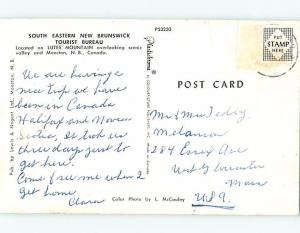 SOUTH EASTERN NEW BRUNSWICK
TOURIST BUREAU
Located on LUTES MOUNTAIN overlooking scenic
valley and Moncton, N.B., Canada
P53230
PUT
STAMP
HERE
POST CARD
We are having a
nice trip we have
been in Canada
Halifax and Novia
Scotia, It took us
three days just to
get here.
Come & see me when I
get home
Clara
Mr & Mrs
Melancon
284 Essex Ave
West Gloucester
Mass
USA
Pub. by Lewis & Nugent Ltd., Moncton, N.B.
Color Photo by L. McCauley